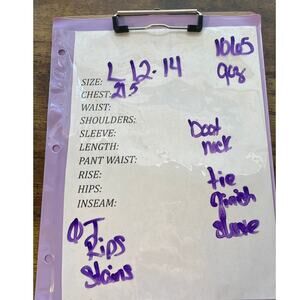 L 12-14
1065
SIZE:
CHEST: 21.5
WAIST:
SHOULDERS:
SLEEVE:
LENGTH:
PANT WAIST:
RISE:
HIPS:
INSEAM:
Boat
neck
tie
finish
Rips
Stains